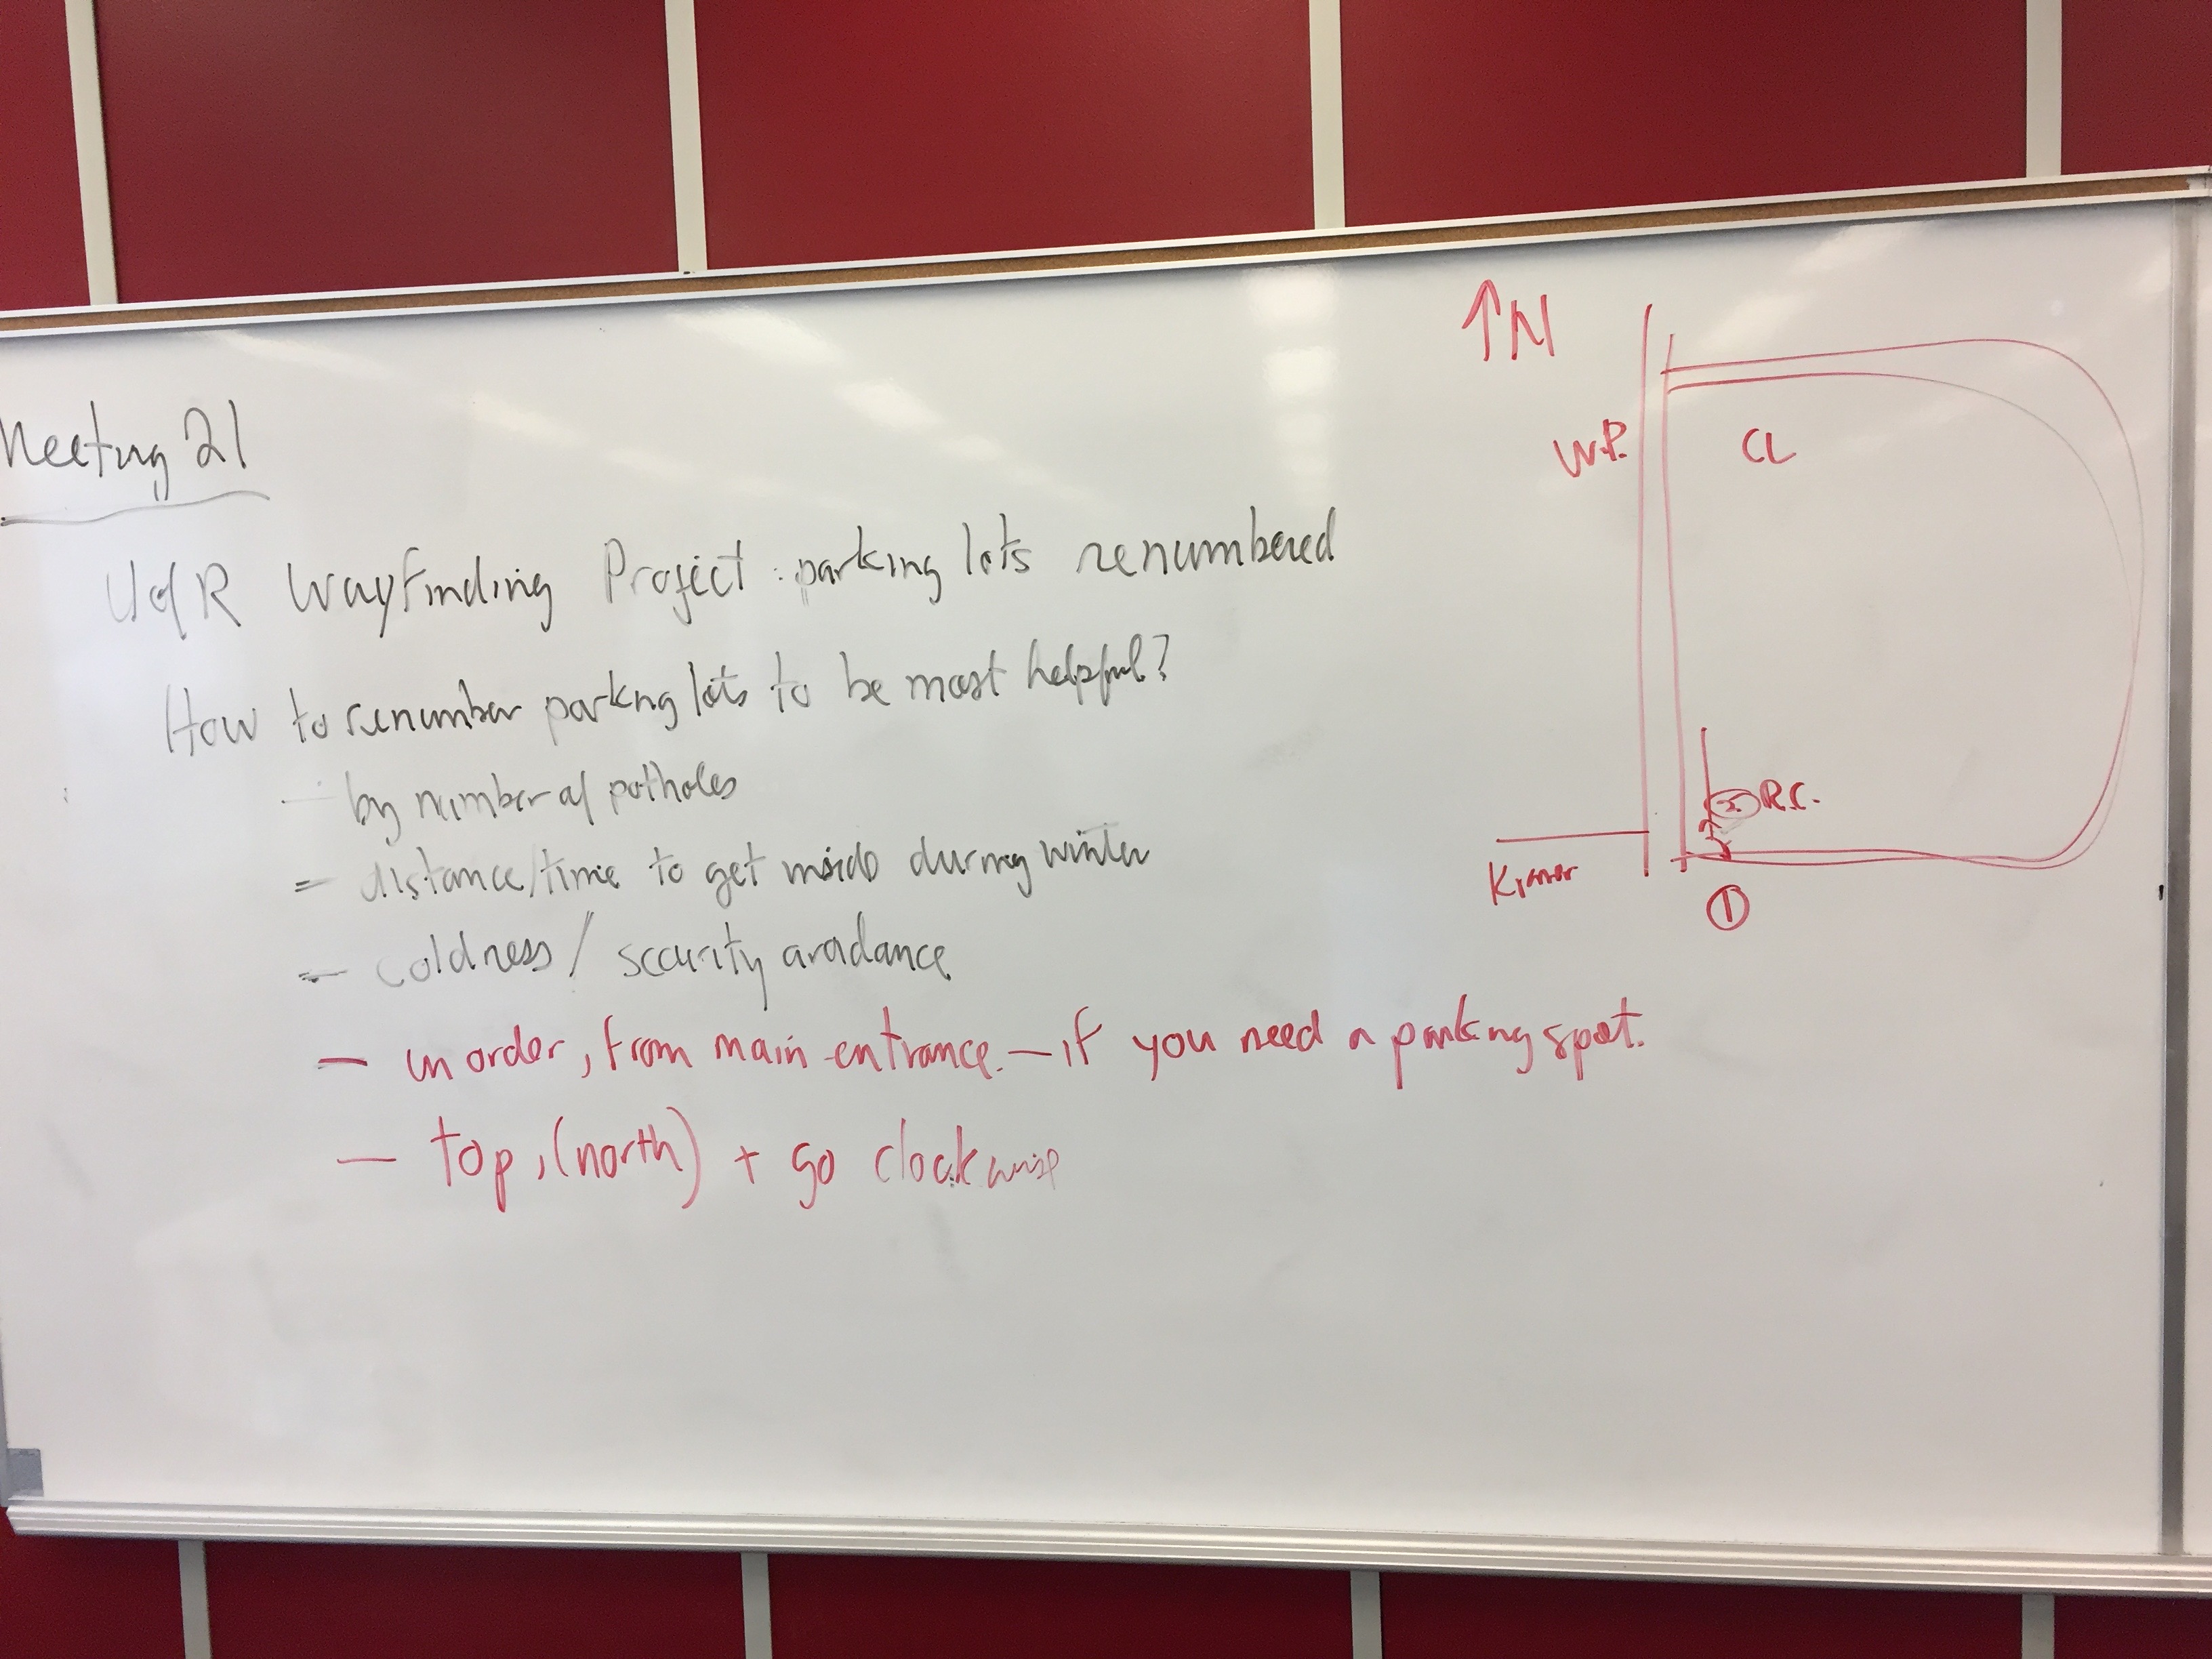 Meeting 21
UofR Wayfinding Project: parking lots renumbered
How to renumber parking lots to be most helpful?
- by number of potholes
- distance/time to get inside during winter
- coldness / security avoidance
- in order, from main entrance. - if you need a parking spot.
- top, (north) + go clockwise
↑N
W.P.
CL
2 R.C.
Kramer
1